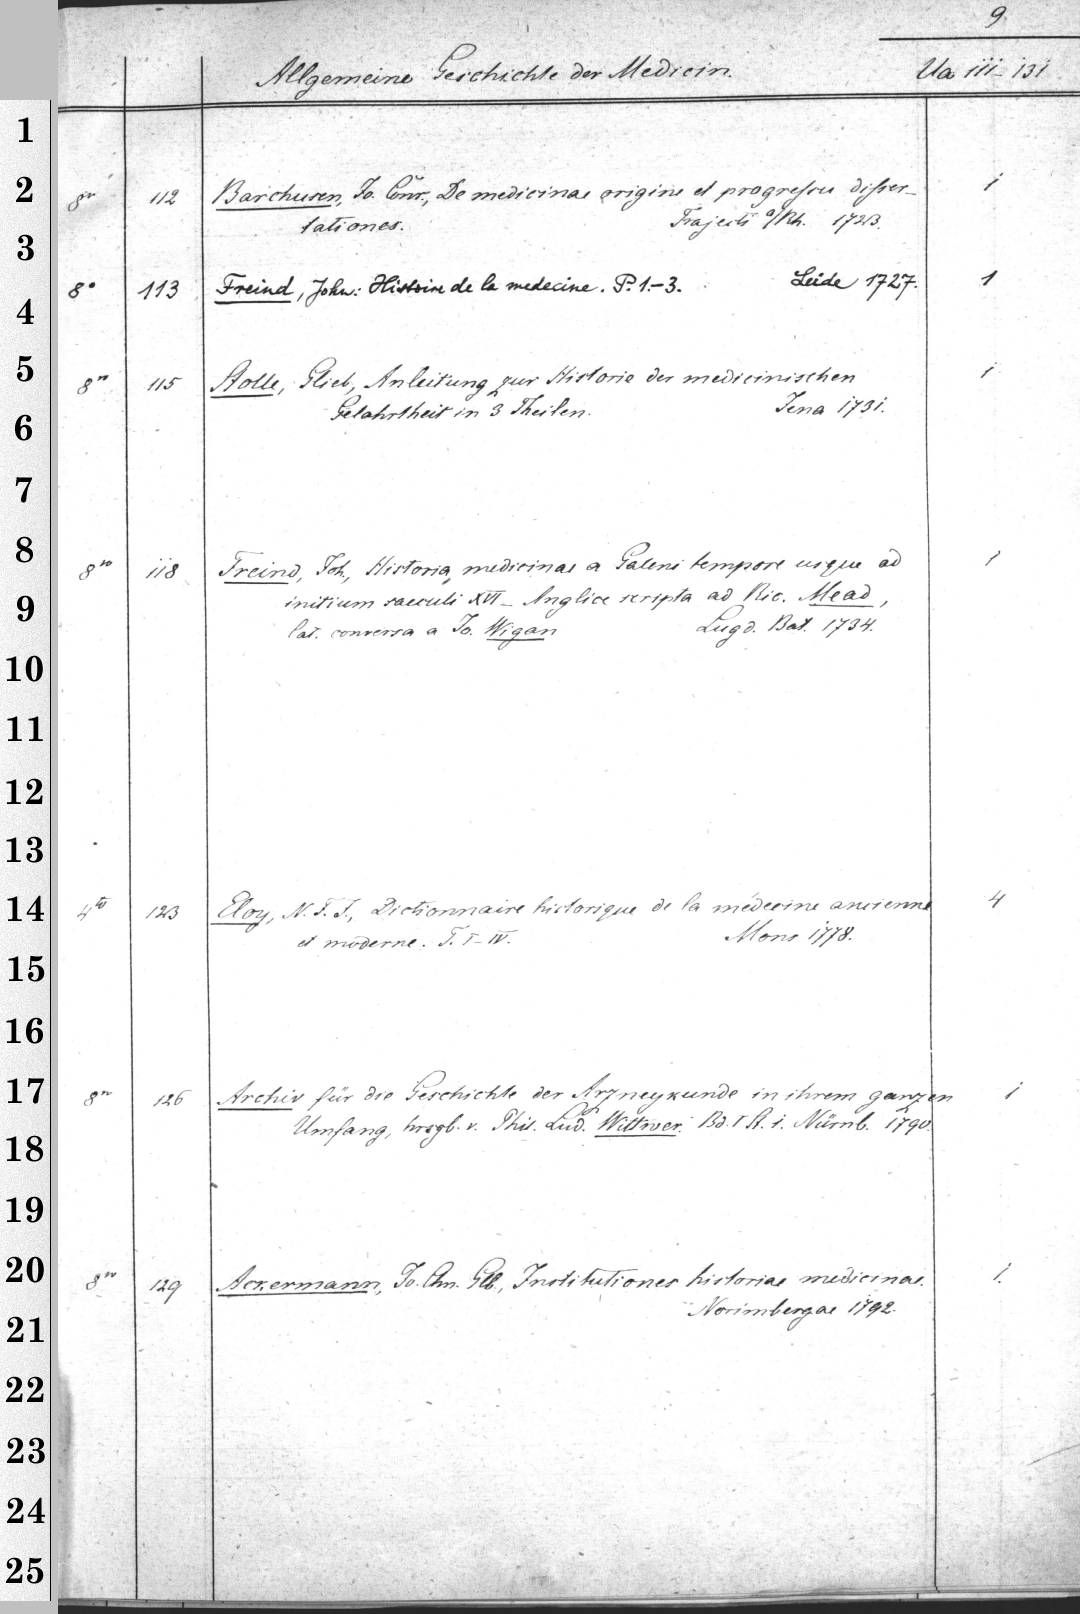 9
Allgemeine Geschichte der Medicin. Ua 111-131
1
2
8vo 112 Barchusen, Jo. Conr., De medicinae origine et progressu disser-
tationes. Trajecti a/Rh. 1723. 1
3
8° 113 Freind, John: Histoire de la medecine. P. 1.-3. Leide 1727. 1
4
5
8vo 115 Stolle, Glieb, Anleitung zur Historie der medicinischen 1
Gelahrtheit in 3 Theilen. Jena 1731.
6
7
8
8vo 118 Freind, Joh., Historia medicinae a Galeni tempore usque ad 1
9
initium saeculi XVI_ Anglice scripta ad Ric. Mead,
lat. conversa a Jo. Wigan Lugd. Bat. 1734.
10
11
12
13
14
4to 123 Eloy, N. F. J., Dictionnaire historique de la médecine ancienne 4
et moderne. T. I-IV. Mons 1778.
15
16
17
8vo 126 Archiv für die Geschichte der Arzneykunde in ihrem ganzen 1
Umfang, hrsgb. v. Phil. Lud. Wittwer. Bd. I St. 1. Nürnb. 1790.
18
19
20
8vo 129 Ackermann, Jo. Chn. Glb., Institutiones historiae medicinae. 1.
Norimbergae 1792.
21
22
23
24
25